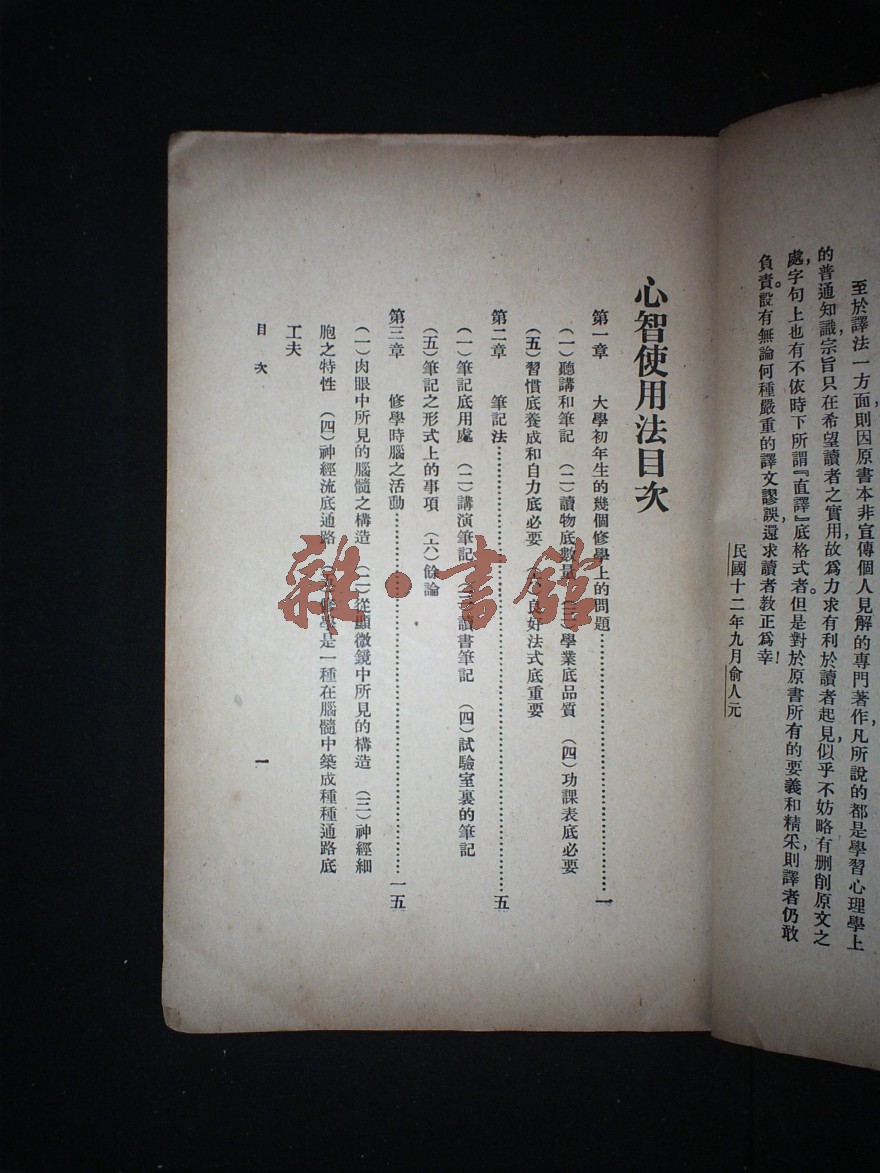 至於譯法一方面,則因原書本非宣傳個人見解的專門著作,凡所說的都是學習心理學上
的普通知識,宗旨只在希望讀者之實用,故爲力求有利於讀者起見,似乎不妨略有删削原文之
處,字句上也有不依時下所謂『直譯』底格式者。但是對於原書所有的要義和精采,則譯者仍敢
負責。設有無論何種嚴重的譯文謬誤,還求讀者教正爲幸!
民國十二年九月俞人元
心智使用法目次
第一章 大學初年生的幾個修學上的問題……一
(一)聽講和筆記 (二)讀物底數量 (三)學業底品質 (四)功課表底必要
(五)習慣底養成和自力底必要 (六)良好法式底重要
第二章 筆記法……五
(一)筆記底用處 (二)講演筆記 (三)讀書筆記 (四)試驗室裏的筆記
(五)筆記之形式上的事項 (六)餘論
第三章 修學時腦之活動……一五
(一)肉眼中所見的腦髓之構造 (二)從顯微鏡中所見的構造 (三)神經細
胞之特性 (四)神經流底通路 (五)修學是一種在腦髓中築成種種通路底
工夫
目次 一
雜·書館